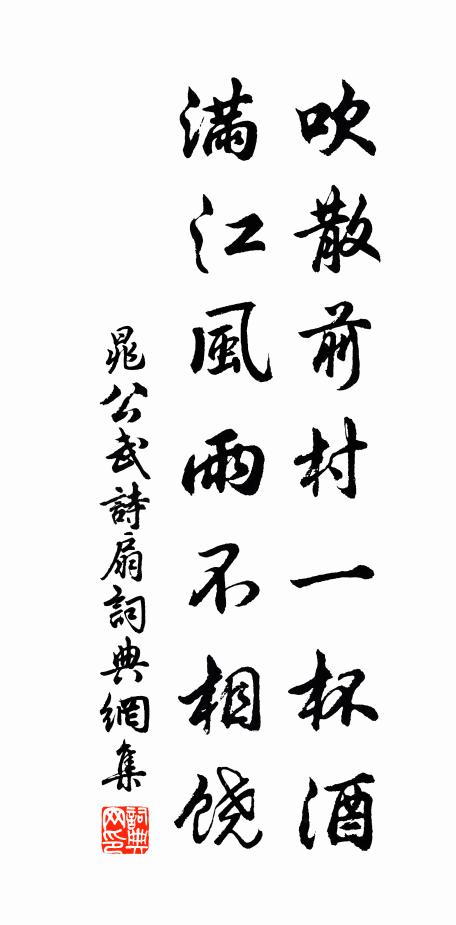 吹散前村一杯酒
満江風雨不相饒
晁公武詩扇詞典網集
詞典網印